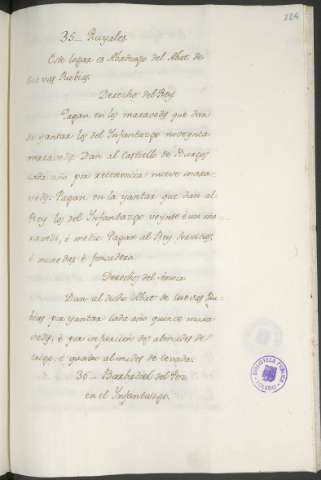 224
35_ Ruyales.
Este logar es Abadengo del Abat de
Cuevas Rubias.
Derecho del Rey
Pagan en los maravedis que dan
de yantar los del Infantazgo noventa
maravedis. Dan al Castiello de Burgos
cada año por retenencia nueve mara-
vedis. Pagan en la yantar que dan al
Rey los del Infantazgo veynte é un ma-
ravedi, é medio. Pagan al Rey servicios,
é monedas é fonsadera.
Derechos del Señor
Dan al dicho Abat de Cuevas Ru-
bias por yantar cada año quince mara-
vedis, é por infurcion dos almudes de
trigo, é quatro almudes de cevada.
36_ Barbadiel del Pez
en el Infantazgo.
BIBLIOTECA PUBLICA
TOLEDO